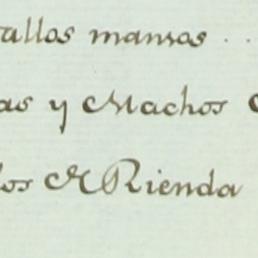 allos mansos ..
as y Machos
os de Rienda